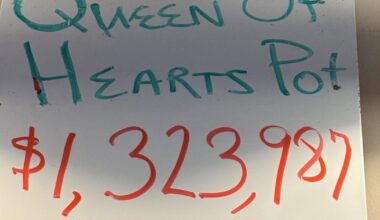 QUEEN OF
HEARTS POT
$1,323,987